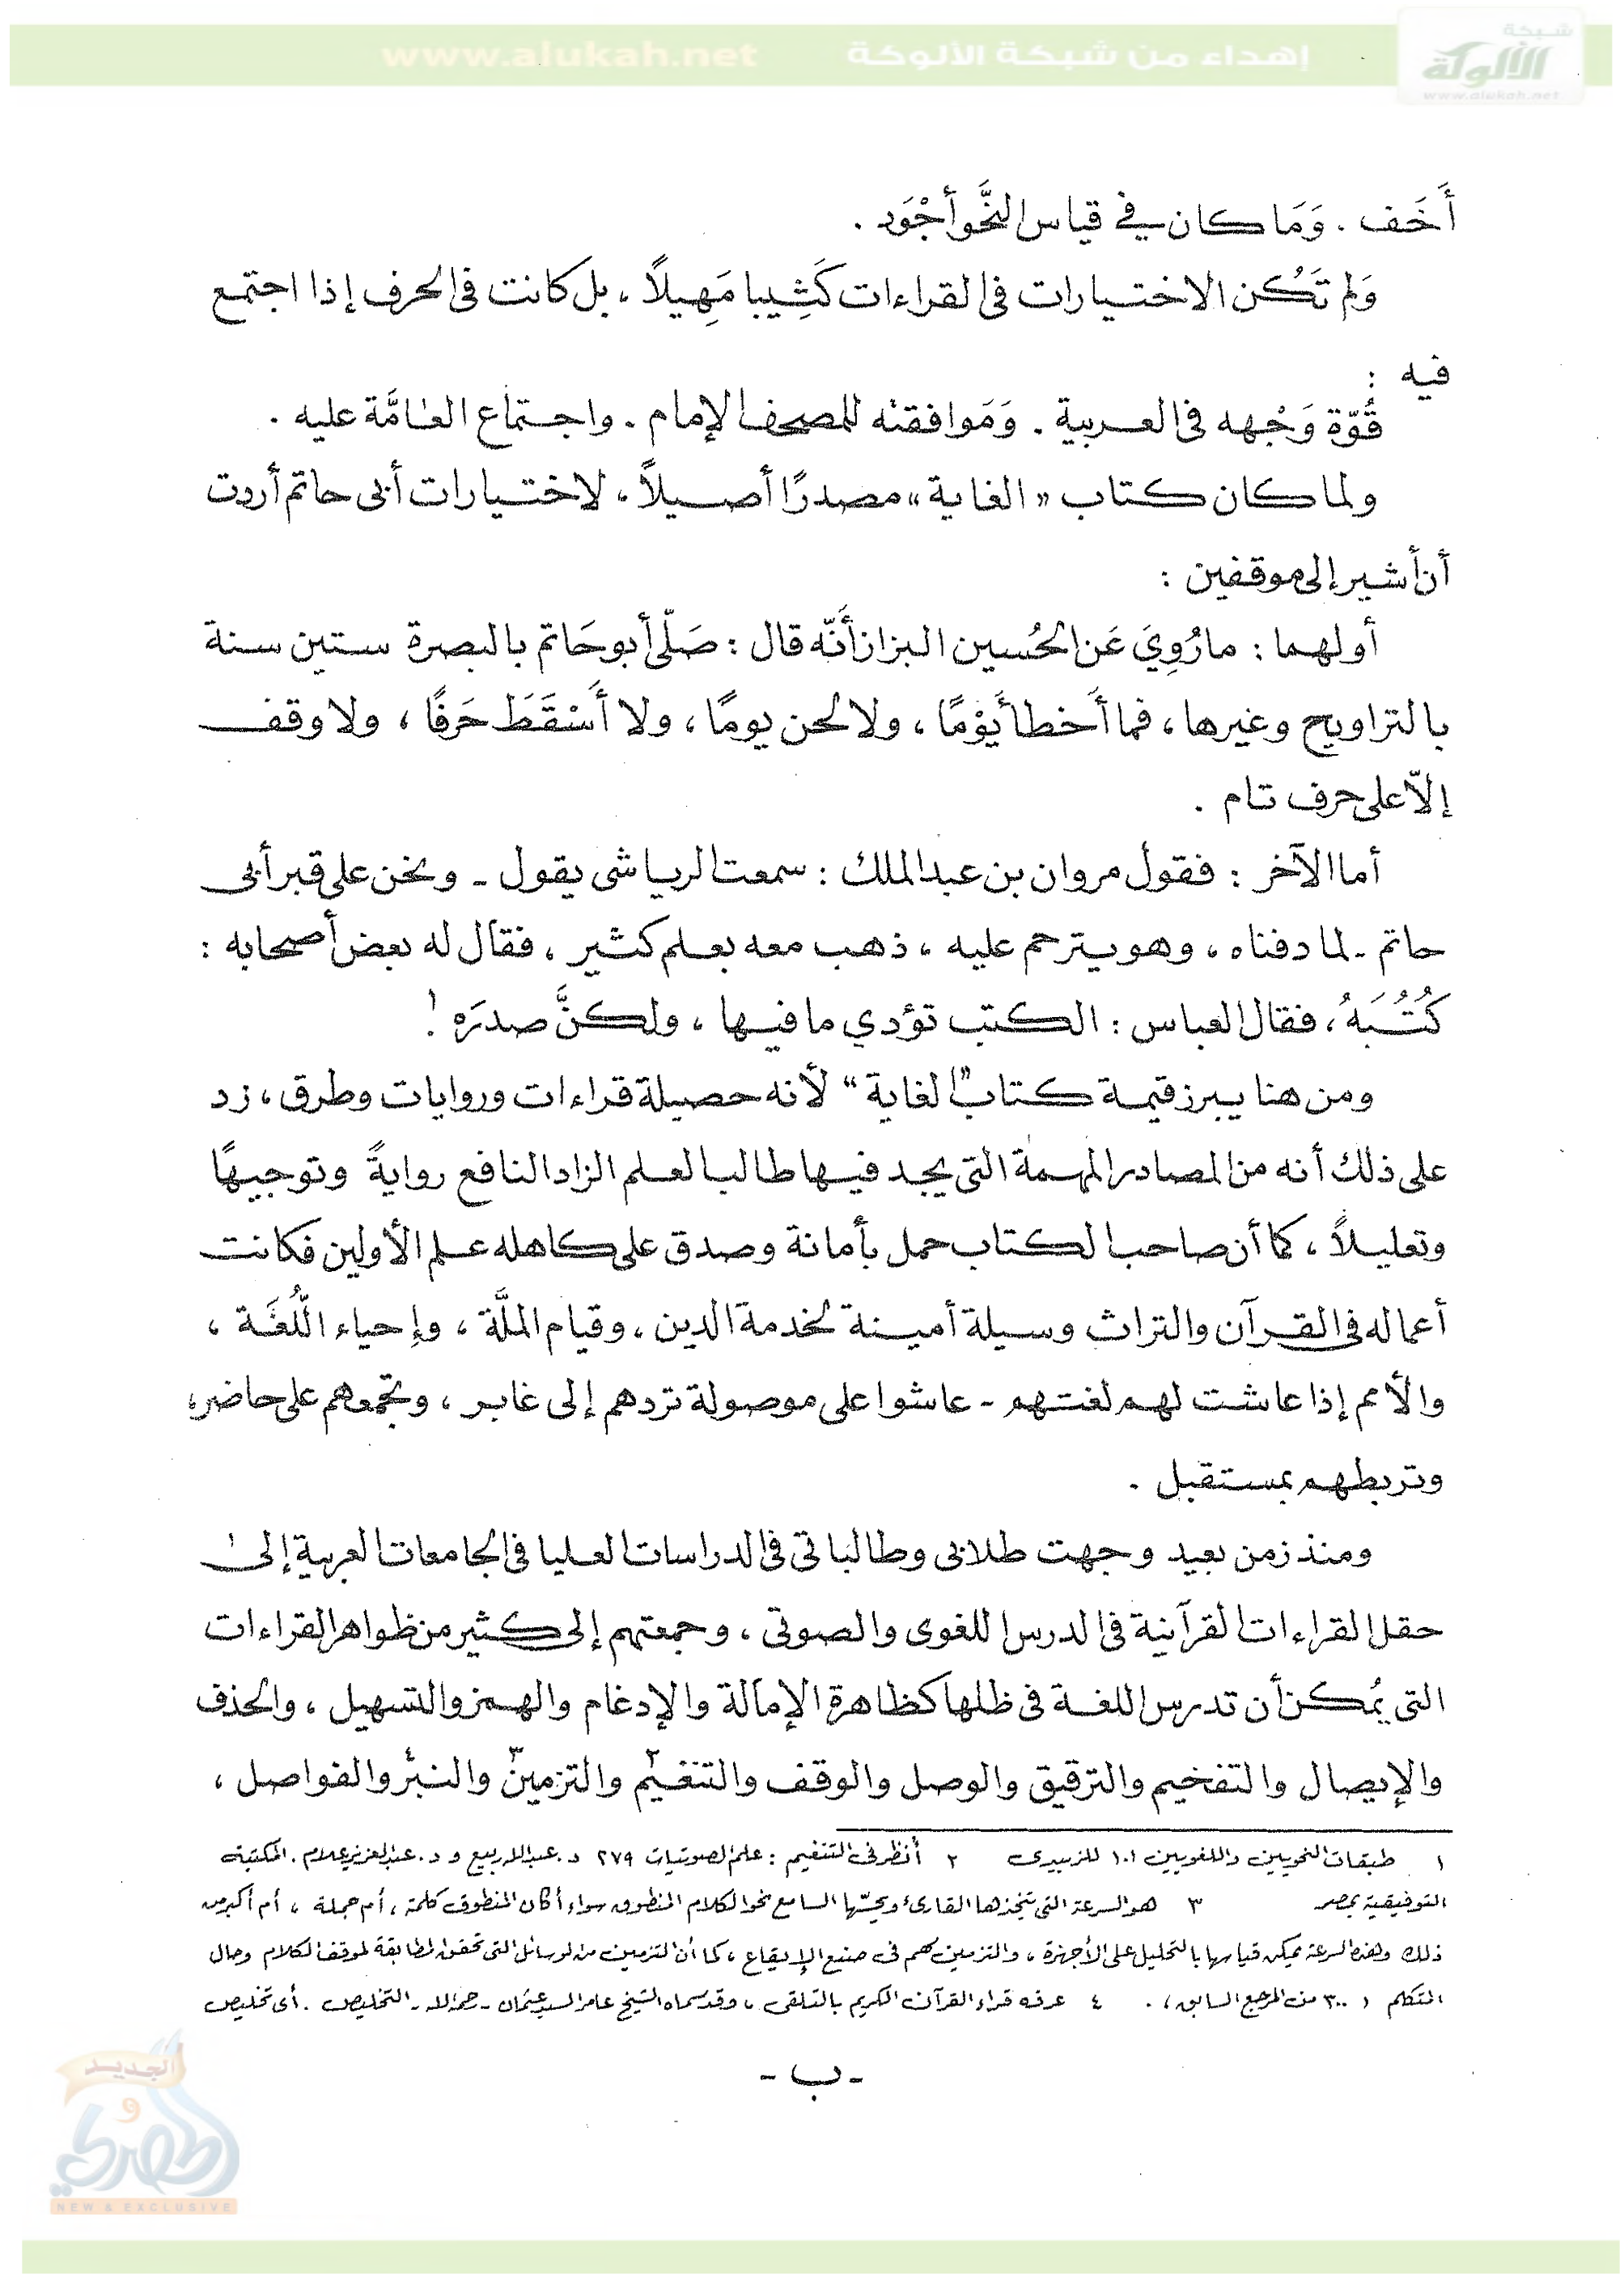 شبكة
الألوكة
www.alukah.net
إهداء من شبكة الألوكة www.alukah.net
أَخَف . وَمَا كان في قياس النَّحو أجْوَد .
وَلم تَكُن الاختيارات فى القراءات كَثِيبا مَهِيلاً ، بل كانت فى الحرف إذا اجتمع
فيه :
قُوّة وَجْهه فى العربية . وَمَوافقته للمصحف الإمام . واجتماع العَامَّة عليه .
ولما كان كتاب « الغاية » مصدرًا أصيلاً ، لاختيارات أبى حاتم أردت
أن أشير إلى موقفين :
أولهما : ما رُوِيَ عَن الحُسين البزاز أَنّه قال : صَلّى أبو حَاتم بالبصرة ستين سنة
بالتراويح وغيرها ، فما أَخطأ يَوْمًا ، ولا لحن يومًا ، ولا أَسْقَطَ حَرفًا ، ولا وقف
إلاّ على حرف تام .
أما الآخر : فقول مروان بن عبد الملك : سمعت الرياشى يقول - ونحن على قبر أبى
حاتم - لما دفناه ، وهو يترحم عليه ، ذهب معه بعلم كثير ، فقال له بعض أصحابه :
كُتُبَهُ ، فقال العباس : الكتب تؤدي ما فيها ، ولكنَّ صدرَه !
ومن هنا يبرز قيمة كتاب " الغاية " لأنه حصيلة قراءات وروايات وطرق ، زد
على ذلك أنه من المصادر المهمة التى يجد فيها طالب العلم الزاد النافع روايةً وتوجيهًا
وتعليلاً ، كما أن صاحب الكتاب حمل بأمانة وصدق على كاهله علم الأولين فكانت
أعماله فى القرآن والتراث وسيلة أمينة لخدمة الدين ، وقيام الملَّة ، وإحياء اللُّغَة ،
والأمم إذا عاشت لهم لغتهم - عاشوا على موصولة تردهم إلى غابر ، وتجمعهم على حاضر ،
وتربطهم بمستقبل .
ومنذ زمن بعيد وجهت طلابى وطالباتى فى الدراسات العليا فى الجامعات العربية إلى
حقل القراءات القرآنية فى الدرس اللغوى والصوتى ، وجمعتهم إلى كثير من ظواهر القراءات
التى يُمكن أن تدرس اللغة فى ظلها كظاهرة الإمالة والإدغام والهمز والتسهيل ، والحذف
والإيصال والتفخيم والترقيق والوصل والوقف والتنغيم٢ والتزمين٣ والنبر٤ والفواصل ،
١ طبقات النحويين واللغويين ١٠١ للزبيدى ٢ أنظر فى التنغيم : علم الصوتيات ٢٧٩ د . عبد الله ربيع و د . عبد العزيز علام . المكتبة
التوفيقية بمصر ٣ هو السرعة التى يتخذها القارئ ويحسّها السامع نحو الكلام المنطوق سواء أكان المنطوق كلمة ، أم جملة ، أم أكبر من
ذلك وهذه السرعة يمكن قياسها بالتحليل على الأجهزة ، والتزمين مهم فى صنع الإيقاع ، كما أن التزمين من الوسائل التى تحقق المطابقة لموقف الكلام وحال
المتكلم ( ٣٠٠ من المرجع السابق ) . ٤ عرفه قراء القرآن الكريم بالتلقى ، وقد سماه الشيخ عامر السيد عثمان - رحمه الله - التخليص . أى تخليص
- ب -
الجديد
و
المصري
NEW & EXCLUSIVE